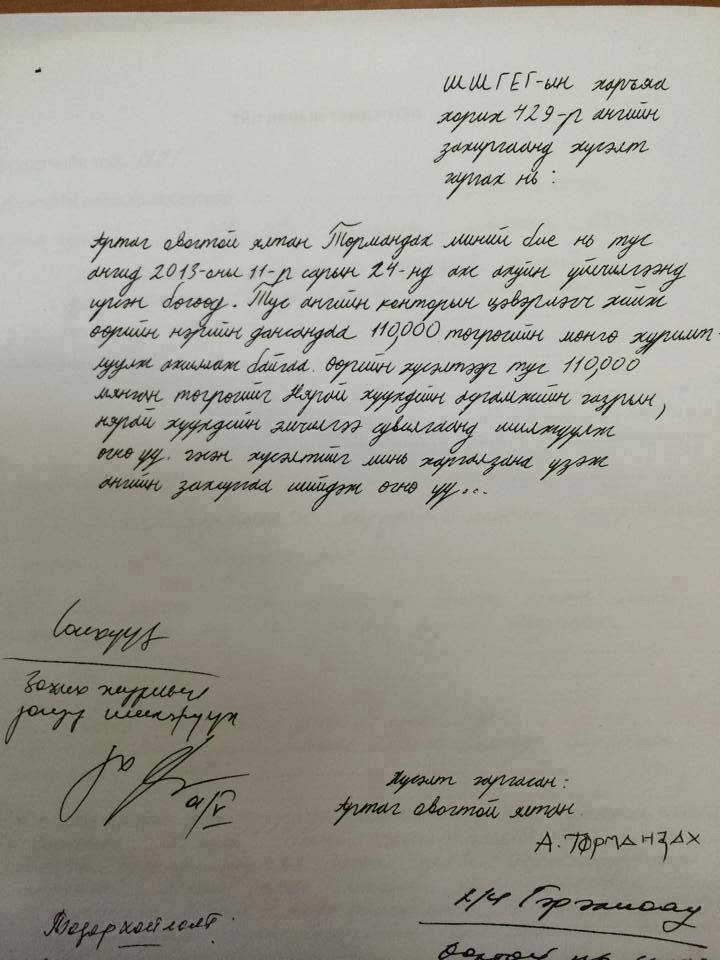 ШШГЕГ-ын харъяа
хорих 429-р ангийн
захиргаанд хүсэлт
гаргах нь:
Артаг овогтой ялтан Төрмандах миний бие нь тус
ангид 2013-оны 11-р сарын 24-нд аж ахуйн үйлчилгээнд
ирсэн бөгөөд. Тус ангийн конторын цэвэрлэгч хийж
өөрийн нэрийн дансандаа 110,000 төгрөгийн мөнгө хуримт-
луулж ажиллаж байгаа. Өөрийн хүсэлтээр тус 110,000
мянган төгрөгийг Нярай хүүхдийн эдгэлхийн газрын,
нярай хүүхдийн эмчилгээ сувилгаанд шилжүүлж
өгнө үү. гэсэн хүсэлтийг минь харгалзана үзэж
ангийн захиргаа шийдэж өгнө үү...
Захих журмын
Хүсэлт гаргасан:
Артаг овогтой ялтан
А. ТӨРМАНДАХ
Тодорхойлолт